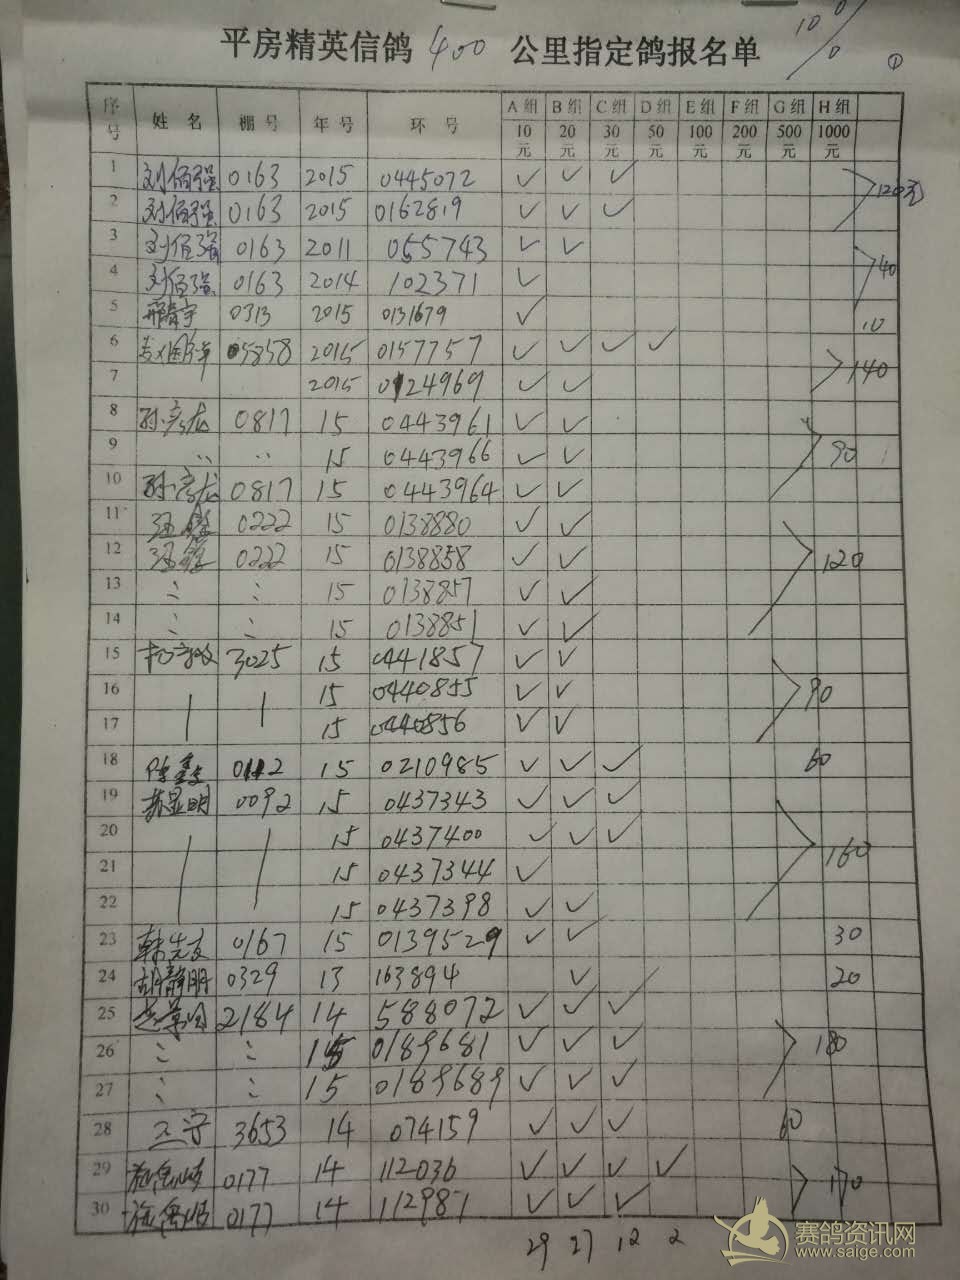 10%
平房精英信鸽 400 公里指定鸽报名单 ①
序号 姓 名 棚 号 年 号 环 号 A组 B组 C组 D组 E组 F组 G组 H组
10元 20元 30元 50元 100元 200元 500元 1000元
1 刘佰强 0163 2015 0445072 ✓ ✓ ✓
2 刘佰强 0163 2015 0162819 ✓ ✓ ✓ 120元
3 刘佰强 0163 2011 055743 ✓ ✓
4 刘佰强 0163 2014 102371 ✓ 40
5 0313 2015 0131679 ✓ 10
6 5858 2015 0157757 ✓ ✓ ✓ ✓
7 2015 0124969 ✓ ✓ 140
8 孙彦龙 0817 15 0443961 ✓ ✓
9 〃 〃 15 0443966 ✓ ✓ 90
10 孙彦龙 0817 15 0443964 ✓ ✓
11 0222 15 0138880 ✓ ✓
12 0222 15 0138858 ✓ ✓ 120
13 〃 〃 15 0138857 ✓ ✓
14 〃 〃 15 0138851 ✓ ✓
15 3025 15 0441857 ✓ ✓
16 15 0440855 ✓ ✓ 90
17 15 0440856 ✓ ✓
18 0112 15 0210985 ✓ ✓ ✓ 60
19 0092 15 0437343 ✓ ✓ ✓
20 15 0437400 ✓ ✓ ✓
21 15 0437344 ✓ 160
22 15 0437398 ✓ ✓
23 韩先友 0167 15 0139529 ✓ ✓ 30
24 胡静明 0329 13 163894 ✓ 20
25 2184 14 588072 ✓ ✓ ✓
26 〃 〃 15 0189681 ✓ ✓ ✓ 180
27 〃 〃 15 0189689 ✓ ✓ ✓
28 3653 14 074159 ✓ ✓ ✓ 60
29 0177 14 112036 ✓ ✓ ✓ ✓
30 0177 14 112987 ✓ ✓ ✓ 170
29 27 12 2
赛鸽资讯网
www.saige.com